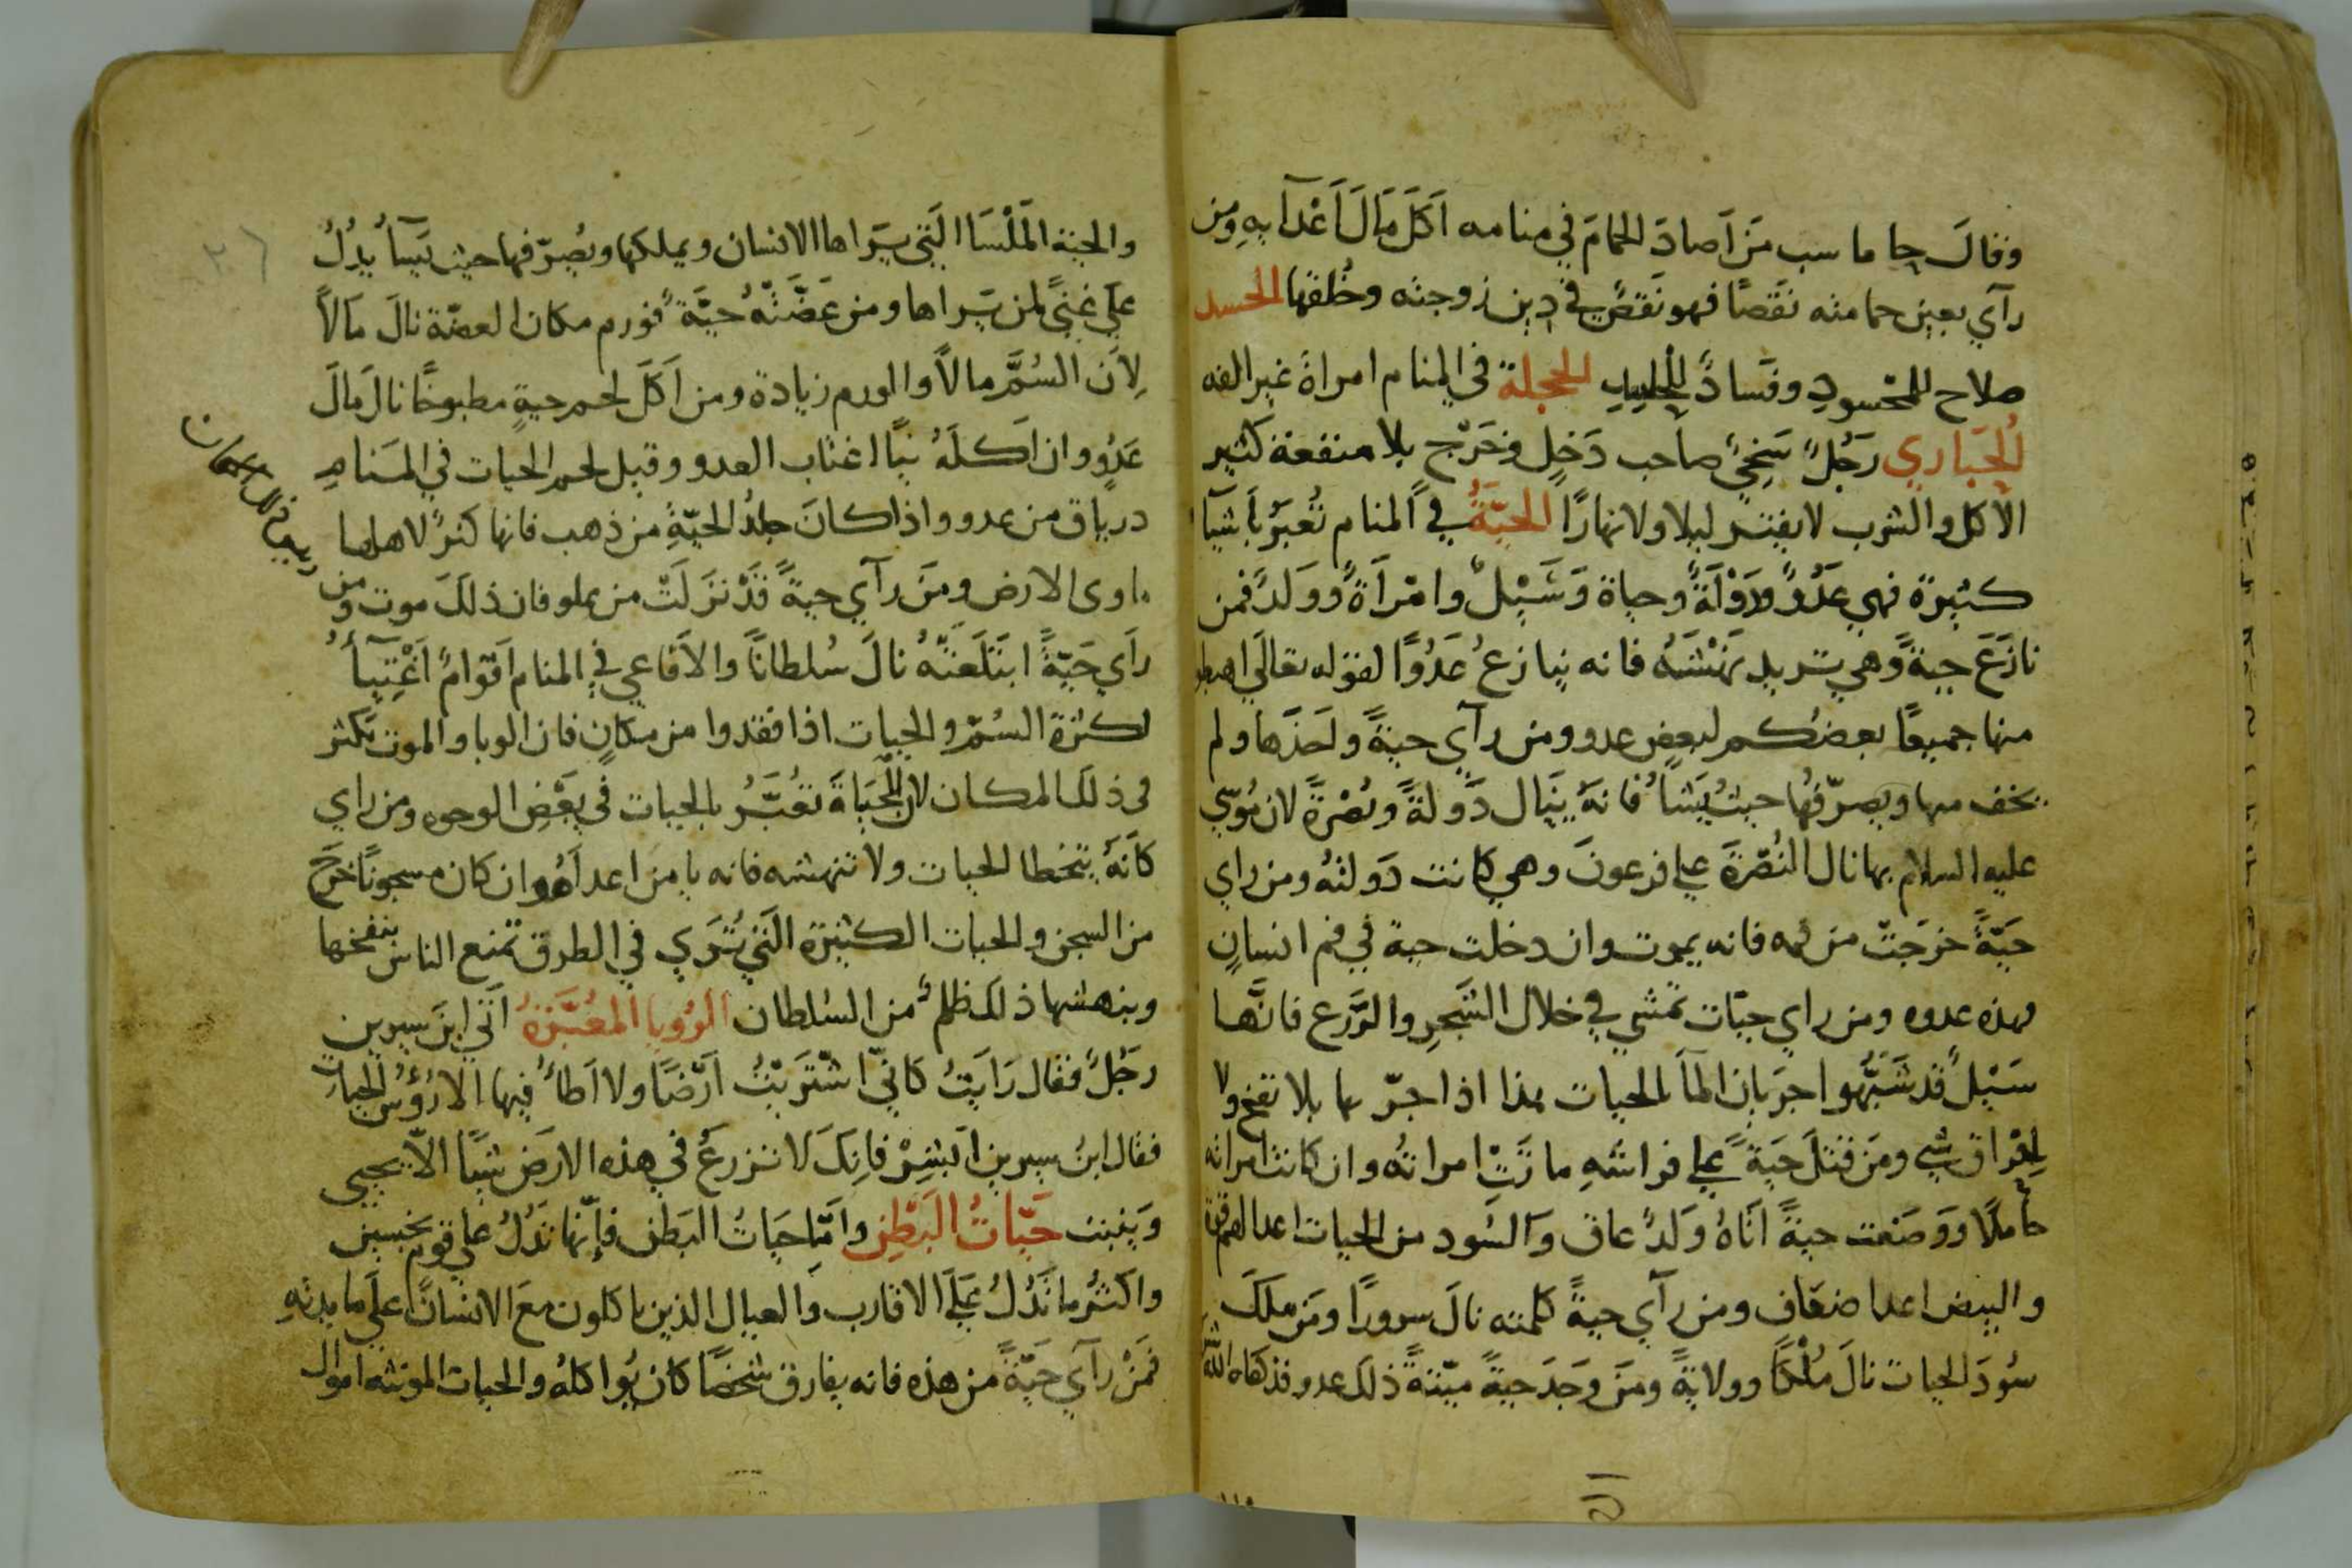 وقالَ جاماسب مَن اَصادَ الحمامَ في منامه اَكَلَ مَالَ اَعْدآيهِ ومن
رآي بعين حمامته نَقَصًا فهو نَقصٌ في دِين زوجته وخُلقها الحسد
صلاح للمحْسودِ وفَسادً للحاسِدِ الحجلة في المنام امراةٌ غير الفه
الحَبَاري رَجُلً سَخِيً صاحب دَخلٍ وخَرْج بلا منفعة كثير
الاكل والشرب لا يفتر ليلا ولا نهارًا الحيّةُ في المنام تُعبَّرُ باَشيآء
كثيرة فهي عَدُوً ودَوْلَةً وحياة وَسَيْلٌ وامْرَاَةً ووَلَدً فمن
نازَعَ حيةً وهي تريد نهْشَهُ فانه ينازعُ عَدُوًا لقوله تعالَي اهبطو
منها جميعًا بعضُكم لبعضٍ عدو ومن رآي حيةً واَخَذَها ولم
يخف منها ويصرّفُها حيثُ يَشآُ فانهُ يَنَال دَولةً ونُصْرَةً لان مُوسَي
عليه السلام بها نال النُصْرَةَ علي فرعونَ وهي كانت دَولتهُ ومن راي
حَيّةً خرَجَتْ من فمه فانه يموت وان دخلت حية في فم انسانٍ
فهذه عدوه ومن راي حيّات تمْشي في خلال الشَجرِ والزَّرع فانَّها
سَيْلً قد شَبَّهوا جرَيان المآَ بالحيات هذا اذا جرّ ما بلا نفخ ولا
اِغْرَاق شيء ومَن قتلَ حَيَةً علي فراشهِ ماتَتِْ امراتهُ وان كانت امراته
حاملًا ووَضَعت حيةً اَتَاهُ وَلدً عاق وَالسُود من الحيات اعدا لهم قوة
والبيض اعدا ضعَاف ومن رآي حيةً كلمته نالَ سرورًا ومَن ملكَ
سُودَ الحيات نالَ مُلْكًا وولايةً ومَن وجَدَ حيةً ميّتةً ذلك عدو قد كفاه اللّه
والحية المَلْسَا الَتي يَراها الانسان ويملكها ويُصرّفها حيث يَشآُ يدُلُ
علَي غنيً لمن يَراها ومن عَضَّتْهُ حيَّةً فورم مكان العضّة نالَ مَالاً
لِاَن السُمَّ مالاً والورم زيادة ومن اَكَلَ لحم حيةٍ مطبوخًا نال مَالَ
عَدُوٍ وان اَكلَهُ نيًا اغتاب العدو وقيل لحم الحيات في المنامِ
درياق من عدو واذا كانَ جلدُ الحيّةِ من ذهب فانها كنزً لاهلها
ماوي الارض ومَن رآي حيةً قَدْ نزَلَتْ من علو فان ذلكَ موت ومن
رآَي حَيّةً ابتَلَعَتْهُ نالَ سُلطانًا والاَفاعي في المنام اَقوَامً اَغْنِيآُ
لكثرة السُمّ والحيات اذا فقدوا من مكانٍ فان الوبا والموت يَكثر
في ذلك المكان لان الحَيَاةَ تُعَبَّرُ بالحيات في بَعْضِ الوجوه ومن راي
كاَنهُ يتخطا الحيات ولا تنهشه فانه يامن اعداَهُ وان كان مسجونًا خرَجَ
من السجن والحيات الكثيرة الَتي تُرَي في الطرق تمْنع الناس بنفخها
وبنهشها ذلك ظلمً من السُلطان الرُويا المُعَبَّرَةُ اَتي ابنَ سيرين
رَجُلً فقال رَايَتُ كاني اشْتَرَيْتُ اَرْضًا ولا اَطأُ فيها الا رُؤُسُ الحيات
فقال ابنُ سيرين اَبْشِرْ فانكَ لا تزرعُ في هذه الارض شيًا الاّ يحيي
وَينبت حَيّاتُ البَطْنِ واَمّا حَيَاتُ البَطن فاِنّها تدُلُ علي قوم خسيس
واكثرُ ما تدُلُ علَي الاقارب والعيال الذين ياكلون معَ الانسان علَي مايدتهِ
فمَنْ رآي حَيّةً من هذه فانه يفارق شخصًا كان يُواكلهُ والحيات الموتثه اموال